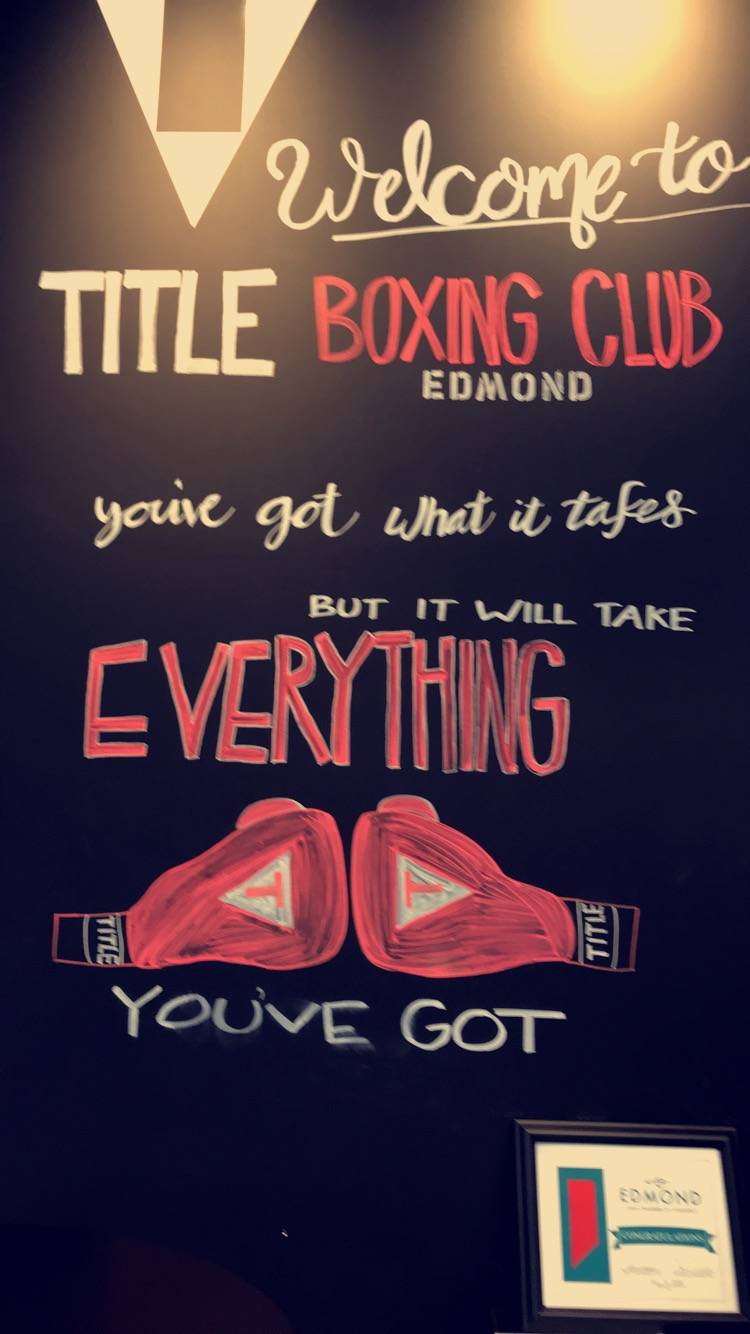 Welcome to
TITLE BOXING CLUB
EDMOND
you've got what it takes
BUT IT WILL TAKE
EVERYTHING
T T
TITLE TITLE
YOU'VE GOT
EDMOND
CONGRATULATIONS